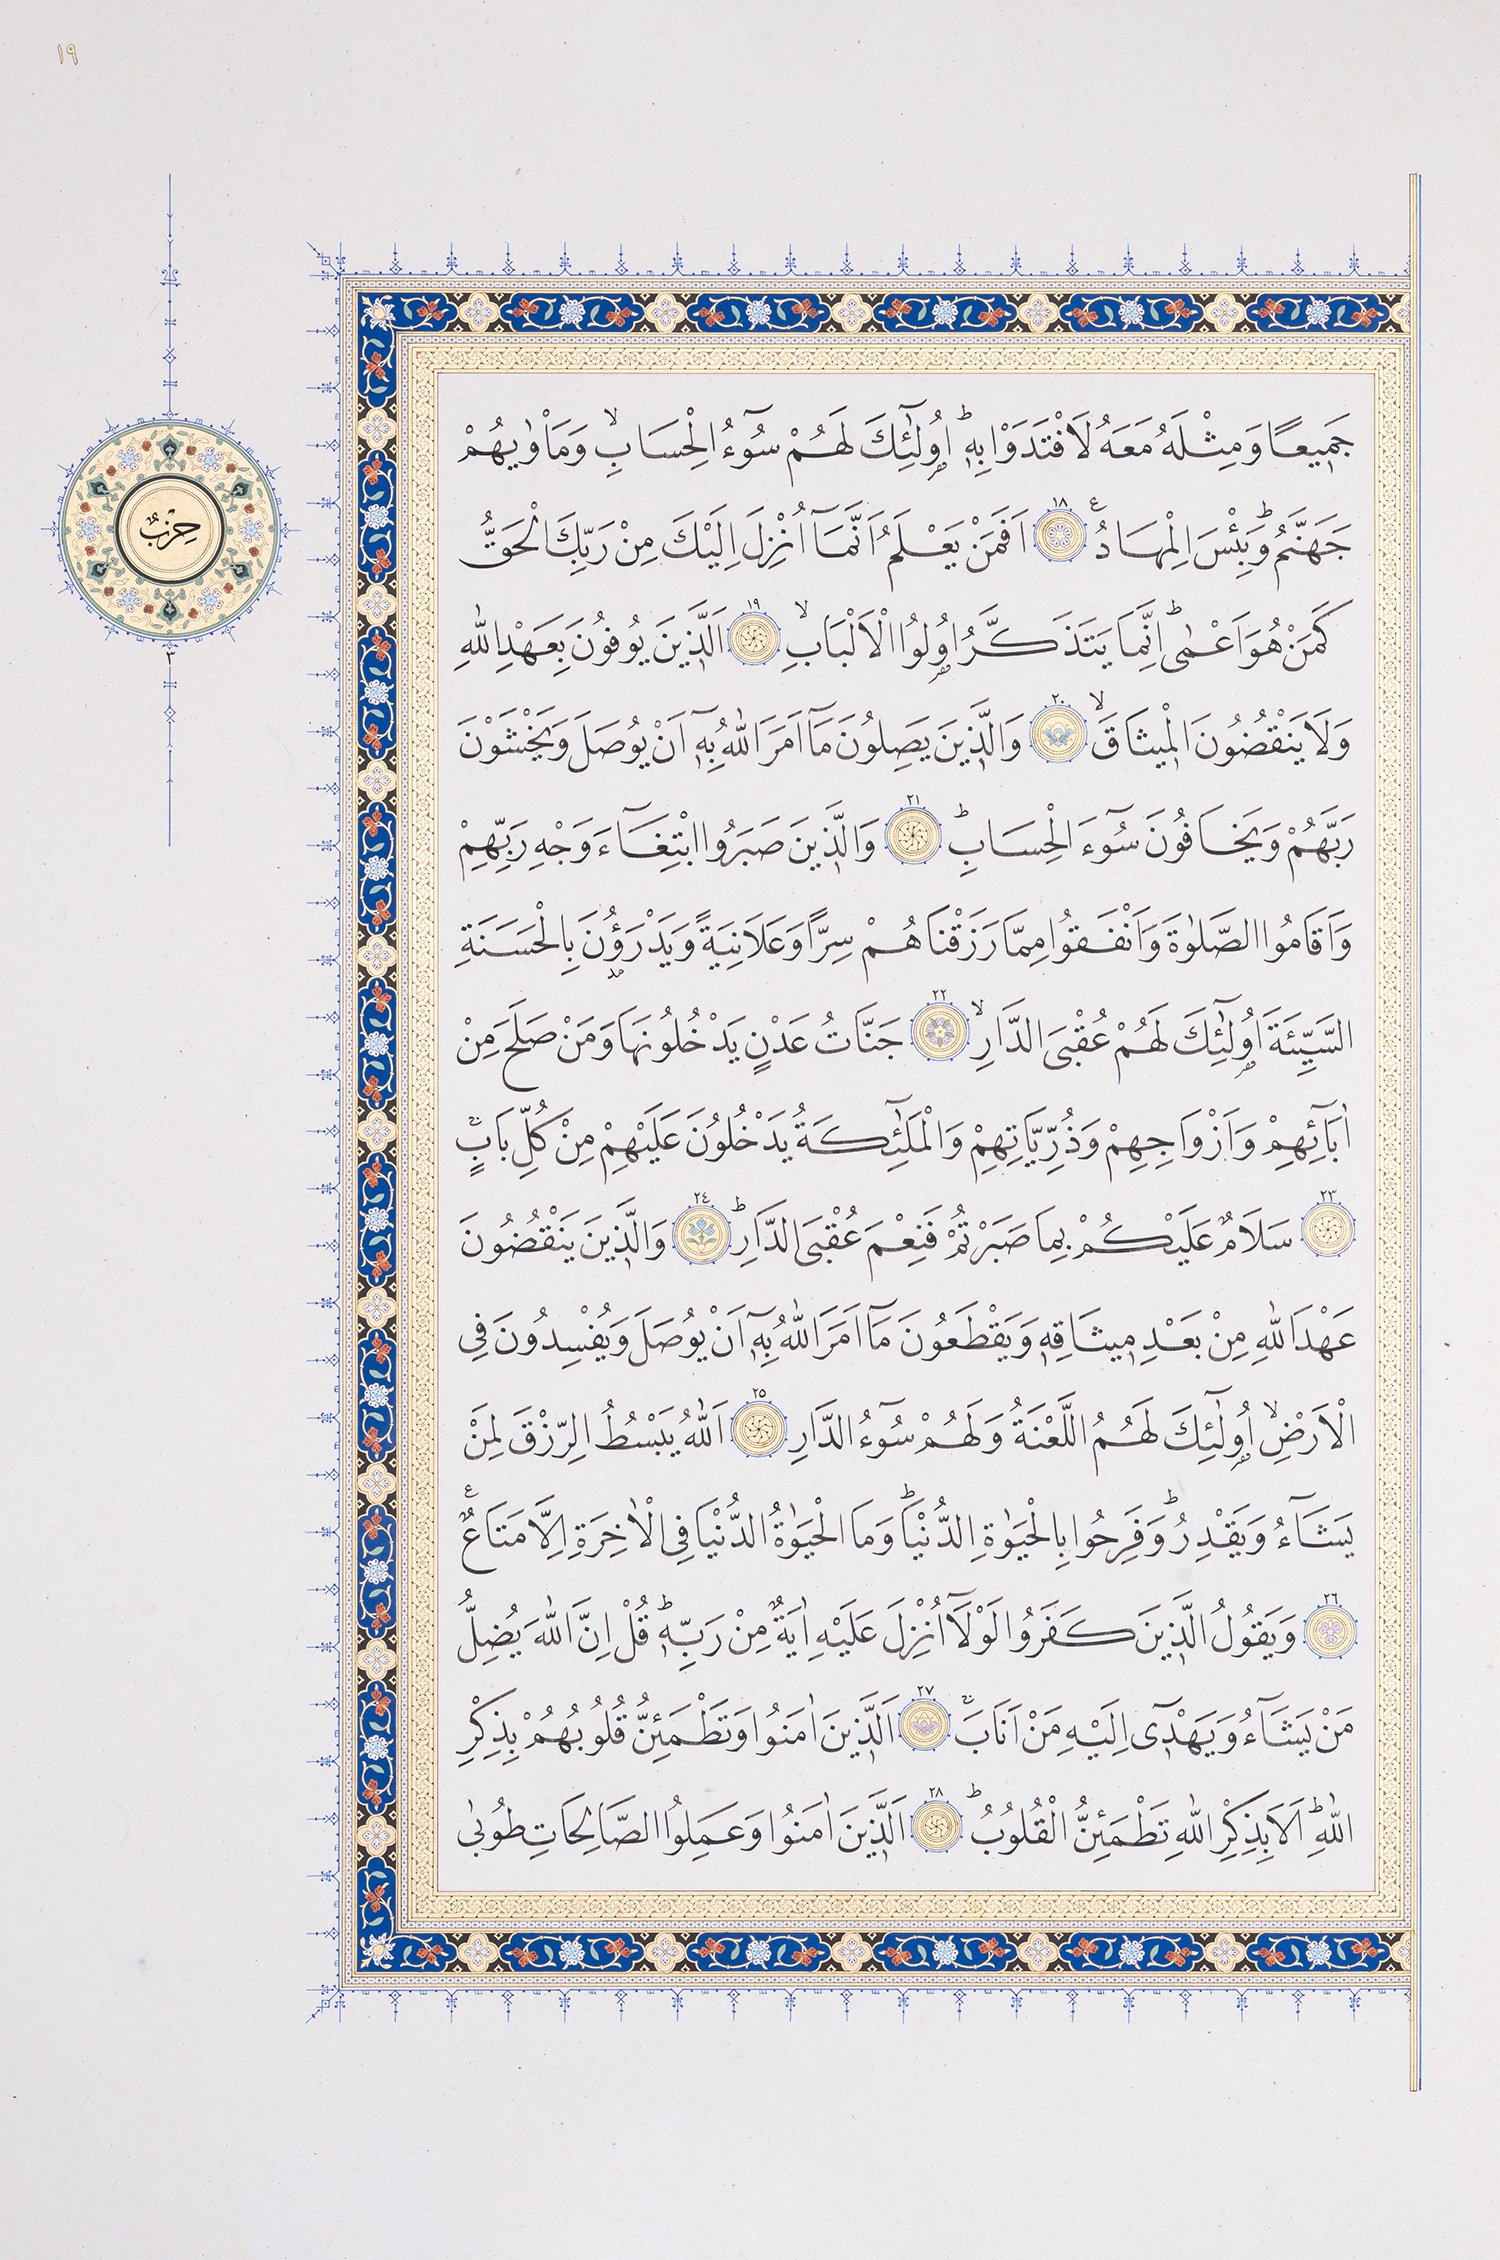 ١٩
جَمٖيعًا وَمِثْلَهُ مَعَهُ لَافْتَدَوْا بِهٖۜ اُو۬لٰٓئِكَ لَهُمْ سُٓوءُ الْحِسَابِۙ وَمَأْوٰيهُمْ
جَهَنَّمُۜ وَبِئْسَ الْمِهَادُ۟ ١٨ اَفَمَنْ يَعْلَمُ اَنَّمَٓا اُنْزِلَ اِلَيْكَ مِنْ رَبِّكَ الْحَقُّ
كَمَنْ هُوَ اَعْمٰىۜ اِنَّمَا يَتَذَكَّرُ اُو۬لُوا الْاَلْبَابِۙ ١٩ اَلَّذٖينَ يُوفُونَ بِعَهْدِ اللّٰهِ
وَلَا يَنْقُضُونَ الْمٖيثَاقَۙ ٢٠ وَالَّذٖينَ يَصِلُونَ مَٓا اَمَرَ اللّٰهُ بِهٖٓ اَنْ يُوصَلَ وَيَخْشَوْنَ
رَبَّهُمْ وَيَخَافُونَ سُٓوءَ الْحِسَابِۜ ٢١ وَالَّذٖينَ صَبَرُوا ابْتِغَٓاءَ وَجْهِ رَبِّهِمْ
وَاَقَامُوا الصَّلٰوةَ وَاَنْفَقُوا مِمَّا رَزَقْنَاهُمْ سِرًّا وَعَلَانِيَةً وَيَدْرَؤُ۫نَ بِالْحَسَنَةِ
السَّيِّئَةَ اُو۬لٰٓئِكَ لَهُمْ عُقْبَى الدَّارِۙ ٢٢ جَنَّاتُ عَدْنٍ يَدْخُلُونَهَا وَمَنْ صَلَحَ مِنْ
اٰبَٓائِهِمْ وَاَزْوَاجِهِمْ وَذُرِّيَّاتِهِمْ وَالْمَلٰٓئِكَةُ يَدْخُلُونَ عَلَيْهِمْ مِنْ كُلِّ بَابٍۚ
٢٣ سَلَامٌ عَلَيْكُمْ بِمَا صَبَرْتُمْ فَنِعْمَ عُقْبَى الدَّارِۜ ٢٤ وَالَّذٖينَ يَنْقُضُونَ
عَهْدَ اللّٰهِ مِنْ بَعْدِ مٖيثَاقِهٖ وَيَقْطَعُونَ مَٓا اَمَرَ اللّٰهُ بِهٖٓ اَنْ يُوصَلَ وَيُفْسِدُونَ فِي
الْاَرْضِۙ اُو۬لٰٓئِكَ لَهُمُ اللَّعْنَةُ وَلَهُمْ سُٓوءُ الدَّارِ ٢٥ اَللّٰهُ يَبْسُطُ الرِّزْقَ لِمَنْ
يَشَٓاءُ وَيَقْدِرُۜ وَفَرِحُوا بِالْحَيٰوةِ الدُّنْيَاۜ وَمَا الْحَيٰوةُ الدُّنْيَا فِي الْاٰخِرَةِ اِلَّا مَتَاعٌ۟
٢٦ وَيَقُولُ الَّذٖينَ كَفَرُوا لَوْلَٓا اُنْزِلَ عَلَيْهِ اٰيَةٌ مِنْ رَبِّهٖۜ قُلْ اِنَّ اللّٰهَ يُضِلُّ
مَنْ يَشَٓاءُ وَيَهْدٖٓي اِلَيْهِ مَنْ اَنَابَۚ ٢٧ اَلَّذٖينَ اٰمَنُوا وَتَطْمَئِنُّ قُلُوبُهُمْ بِذِكْرِ
اللّٰهِۜ اَلَا بِذِكْرِ اللّٰهِ تَطْمَئِنُّ الْقُلُوبُۜ ٢٨ اَلَّذٖينَ اٰمَنُوا وَعَمِلُوا الصَّالِحَاتِ طُوبٰى
حِزْبٌ
٣